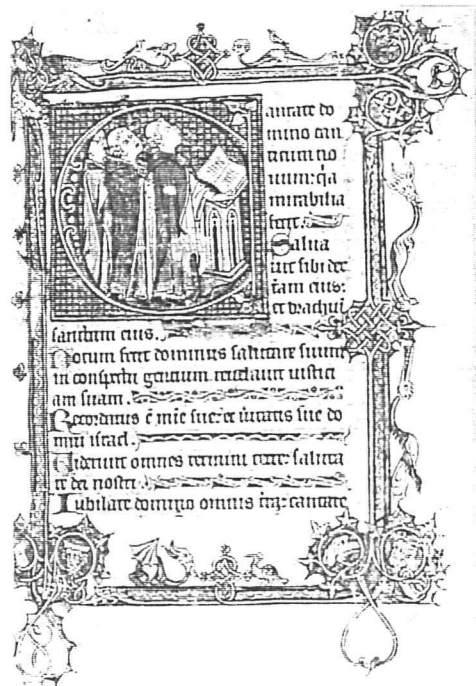 Cantate do
mino can
ticum no
uum: q̄a
mirabilia
fecit.
Salua
uit sibi dex
t̄am eius:
et brachiū
sanctum eius.
Notum fecit dominus salutare suum
in conspectu gentium reuelauit iustici
am suam.
Recordatus ē mīe sue: et ūitatis sue do
mui israel.
Viderunt omnes termini terre: saluta
re dei nostri.
Iubilate domino omnis t̄ra: cantate